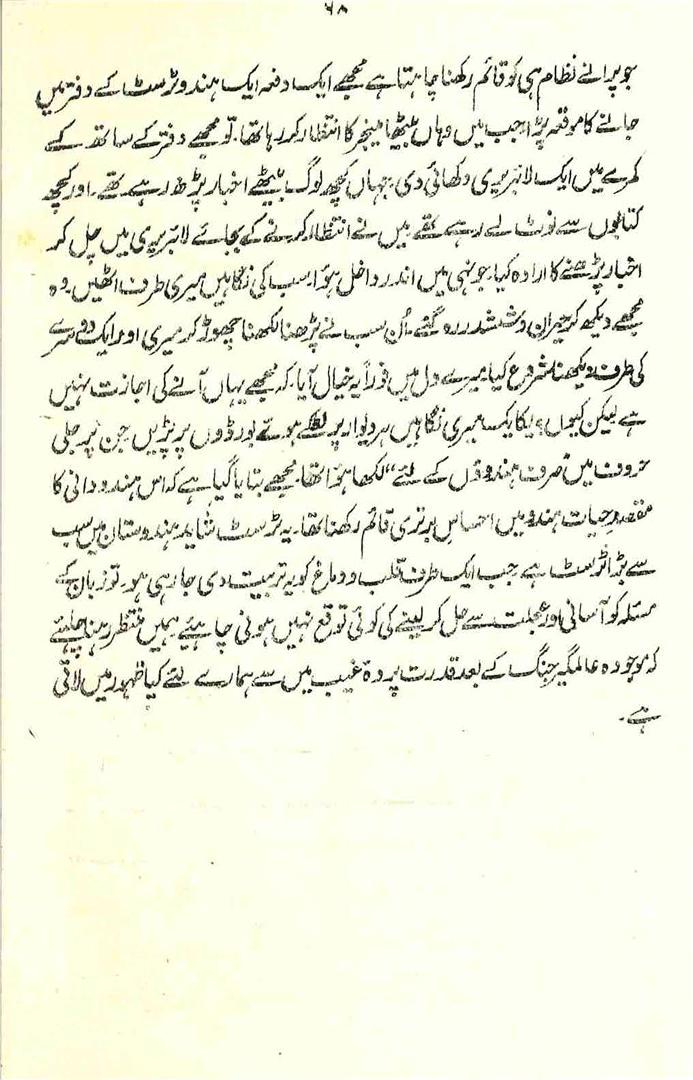 ۶۸
جو پرانے نظام ہی کو قائم رکھنا چاہتا ہے مجھے ایک دفعہ ایک ہندو ٹرسٹ کے دفتر میں
جانے کا موقعہ پڑا جب میں وہاں بیٹھا مینجر کا انتظار کر رہا تھا۔ تو مجھے دفتر کے ساتھ کے
کمرے میں ایک لائبریری دکھائی دی۔ جہاں کچھ لوگ بیٹھے اخبار پڑھ رہے تھے۔ اور کچھ
کتابوں سے نوٹ لے رہے تھے میں نے انتظار کرنے کے بجائے لائبریری میں چل کر
اخبار پڑھنے کا ارادہ کیا۔ جونہی میں اندر داخل ہوا۔ سب کی نگاہیں میری طرف اٹھیں۔ وہ
مجھے دیکھ کر حیران و ششدر رہ گئے۔ اُن سب نے پڑھنا لکھنا چھوڑ کر میری اور ایک دوسرے
کی طرف دیکھنا شروع کیا۔ میرے دل میں فوراً یہ خیال آیا۔ کہ مجھے یہاں آنے کی اجازت نہیں
ہے لیکن کیوں؟ یکایک میری نگاہیں ہر دیوار پر لگے ہوئے بورڈوں پر پڑیں جن پر جلی
حروف میں "صرف ہندوؤں کے لئے" لکھا ہوا تھا۔ مجھے بتایا گیا ہے کہ اس ہندو دانی کا
مقصدِ حیات ہندو میں احساسِ برتری قائم رکھنا تھا۔ یہ ٹرسٹ شاید ہندوستان میں سب
سے بڑا ٹرسٹ ہے۔ جب ایک طرف قلب و دماغ کو یہ تربیت دی جا رہی ہو۔ تو زبان کے
مسئلہ کو آسانی اور عجلت سے حل کر لینے کی کوئی توقع نہیں ہونی چاہیئے ہمیں منتظر رہنا چاہیئے
کہ موجودہ عالمگیر جنگ کے بعد قدرت پردہ غیب میں سے ہمارے لئے کیا ظہور میں لاتی
ہے۔